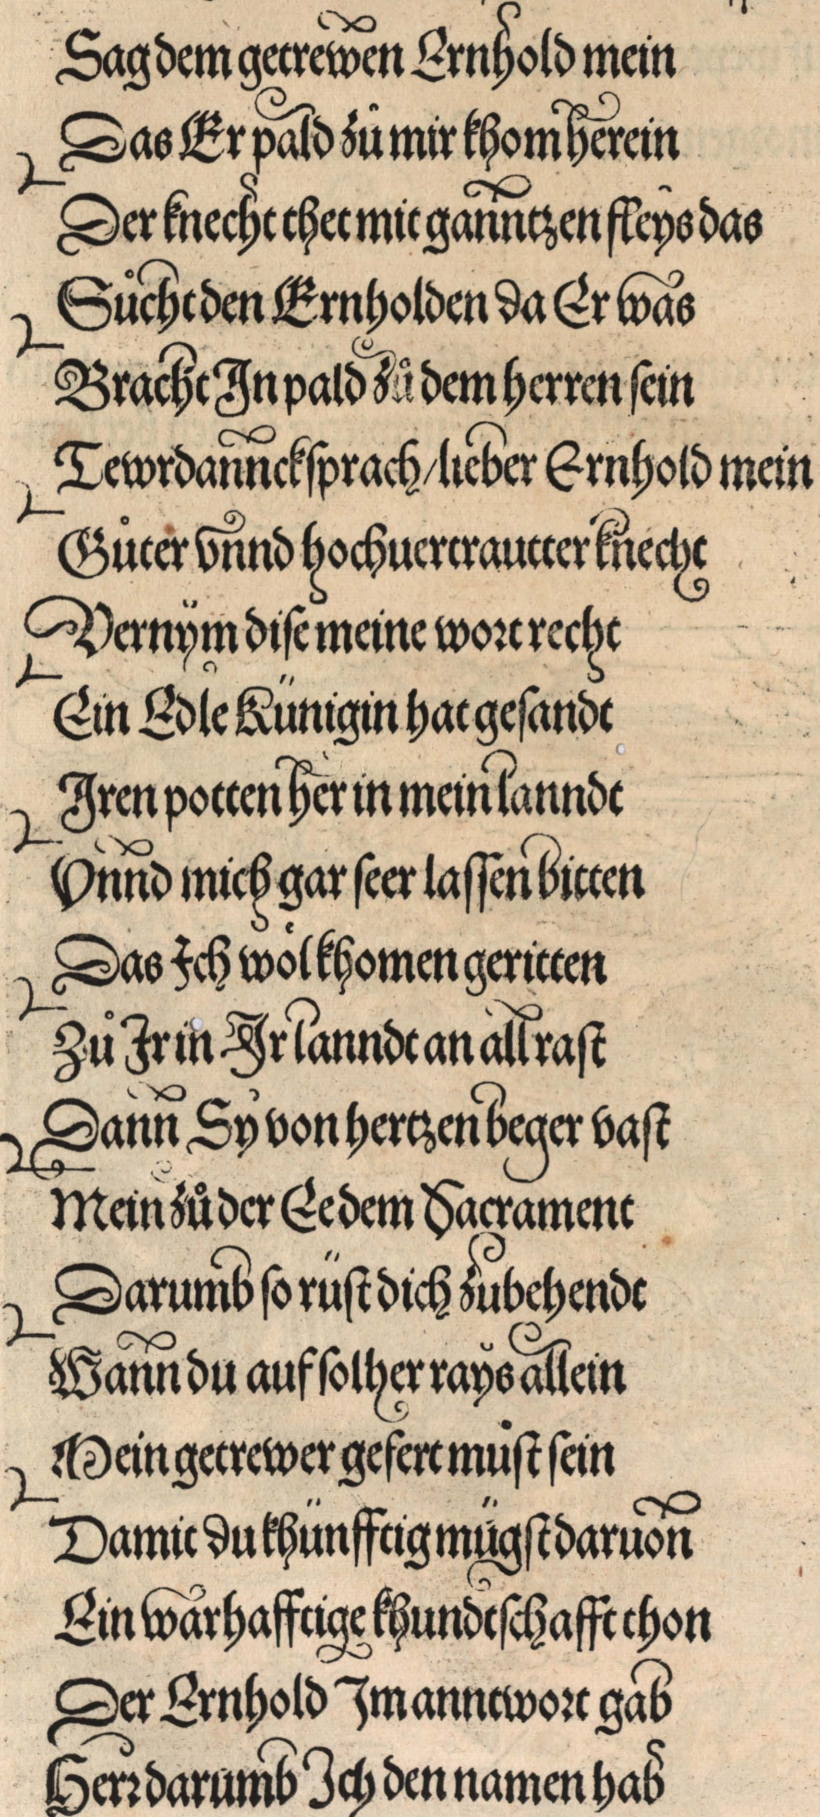 Sag dem getrewen Ernhold mein
Das Er pald zů mir khom herein
Der knecht thet mit ganntzen fleys das
Sůcht den Ernholden da Er was
Bracht In pald zů dem herren sein
Tewrdannck sprach / lieber Ernhold mein
Gůter vnnd hochuertrautter knecht
Vernÿm dise meine wort recht
Ein Edle Künigin hat gesandt
Iren potten her in mein lanndt
Vnnd mich gar seer lassen bitten
Das Ich wöl khomen geritten
Zů Ir in Ir lanndt an all rast
Dann Sÿ von hertzen beger vast
Mein zů der Ee dem Sacrament
Darumb so rüst dich zubehendt
Wann du auf solher raÿs allein
Mein getrewer gefert můst sein
Damit du khünfftig mügst daruon
Ein warhafftige khundtschafft thon
Der Ernhold Im anntwort gab
Herr darumb Ich den namen hab